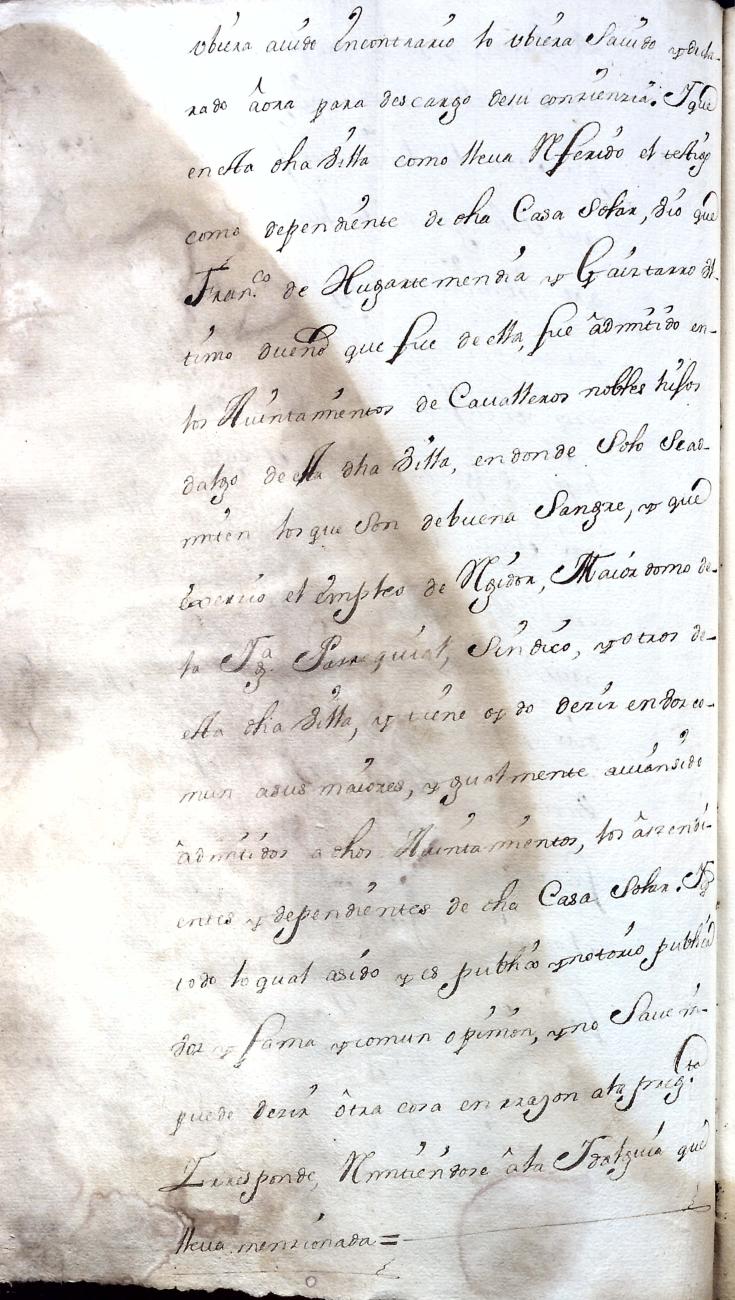 ubiera auido encontrario lo ubiera Sauido y decla-
rado âora para descargo desu conzienzia. Y que
en esta dha Villa como lleva Referido el testigo
como dependiente de dha Casa Solar, dio que
Fran.co de Hugartemendia y Gaiztarro Ul-
timo dueño que fue de ella, fue âdmitido en-
los Aiuntamientos de Caualleros nobles hijos
dalgo de esta dha Villa, en donde Solo Se ad-
miten los que Son de buena Sangre, y que
exerzio el empleo de Regidor, Maiordomo de-
la Yg.a Parrequial, Sindico, y otros de-
esta dha Villa, y tiene oydo dezir en boz co-
mun asus maiores, ygualmente auian sido
âdmitidos a dhos Aiuntamientos, los âszendi-
entes y dependientes de dha Casa Solar. Y q
todo lo qual asido y es publico y notorio publica
boz y fama y comun opinion, y no Saue ni-
puede dezir ôtra cosa en rrazon ala preg.ta
Y rresponde, Remitiendose âla Ydalguia que
lleua menzionada =